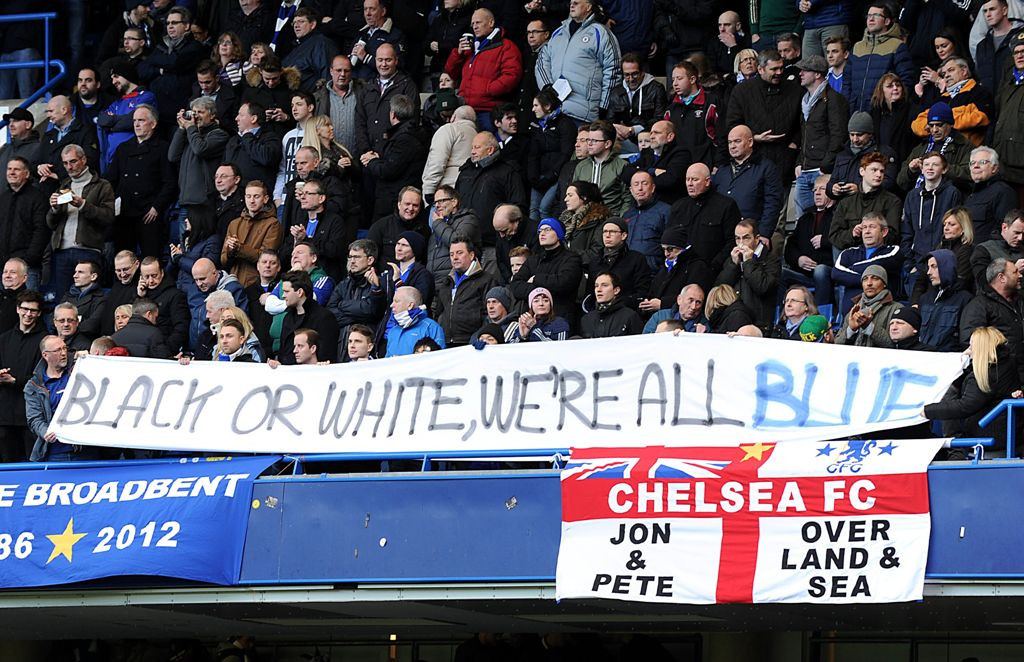 BLACK OR WHITE, WE'RE ALL BLUE
E BROADBENT
86 ★ 2012
CFC
CHELSEA FC
JON
&
PETE
OVER
LAND &
SEA